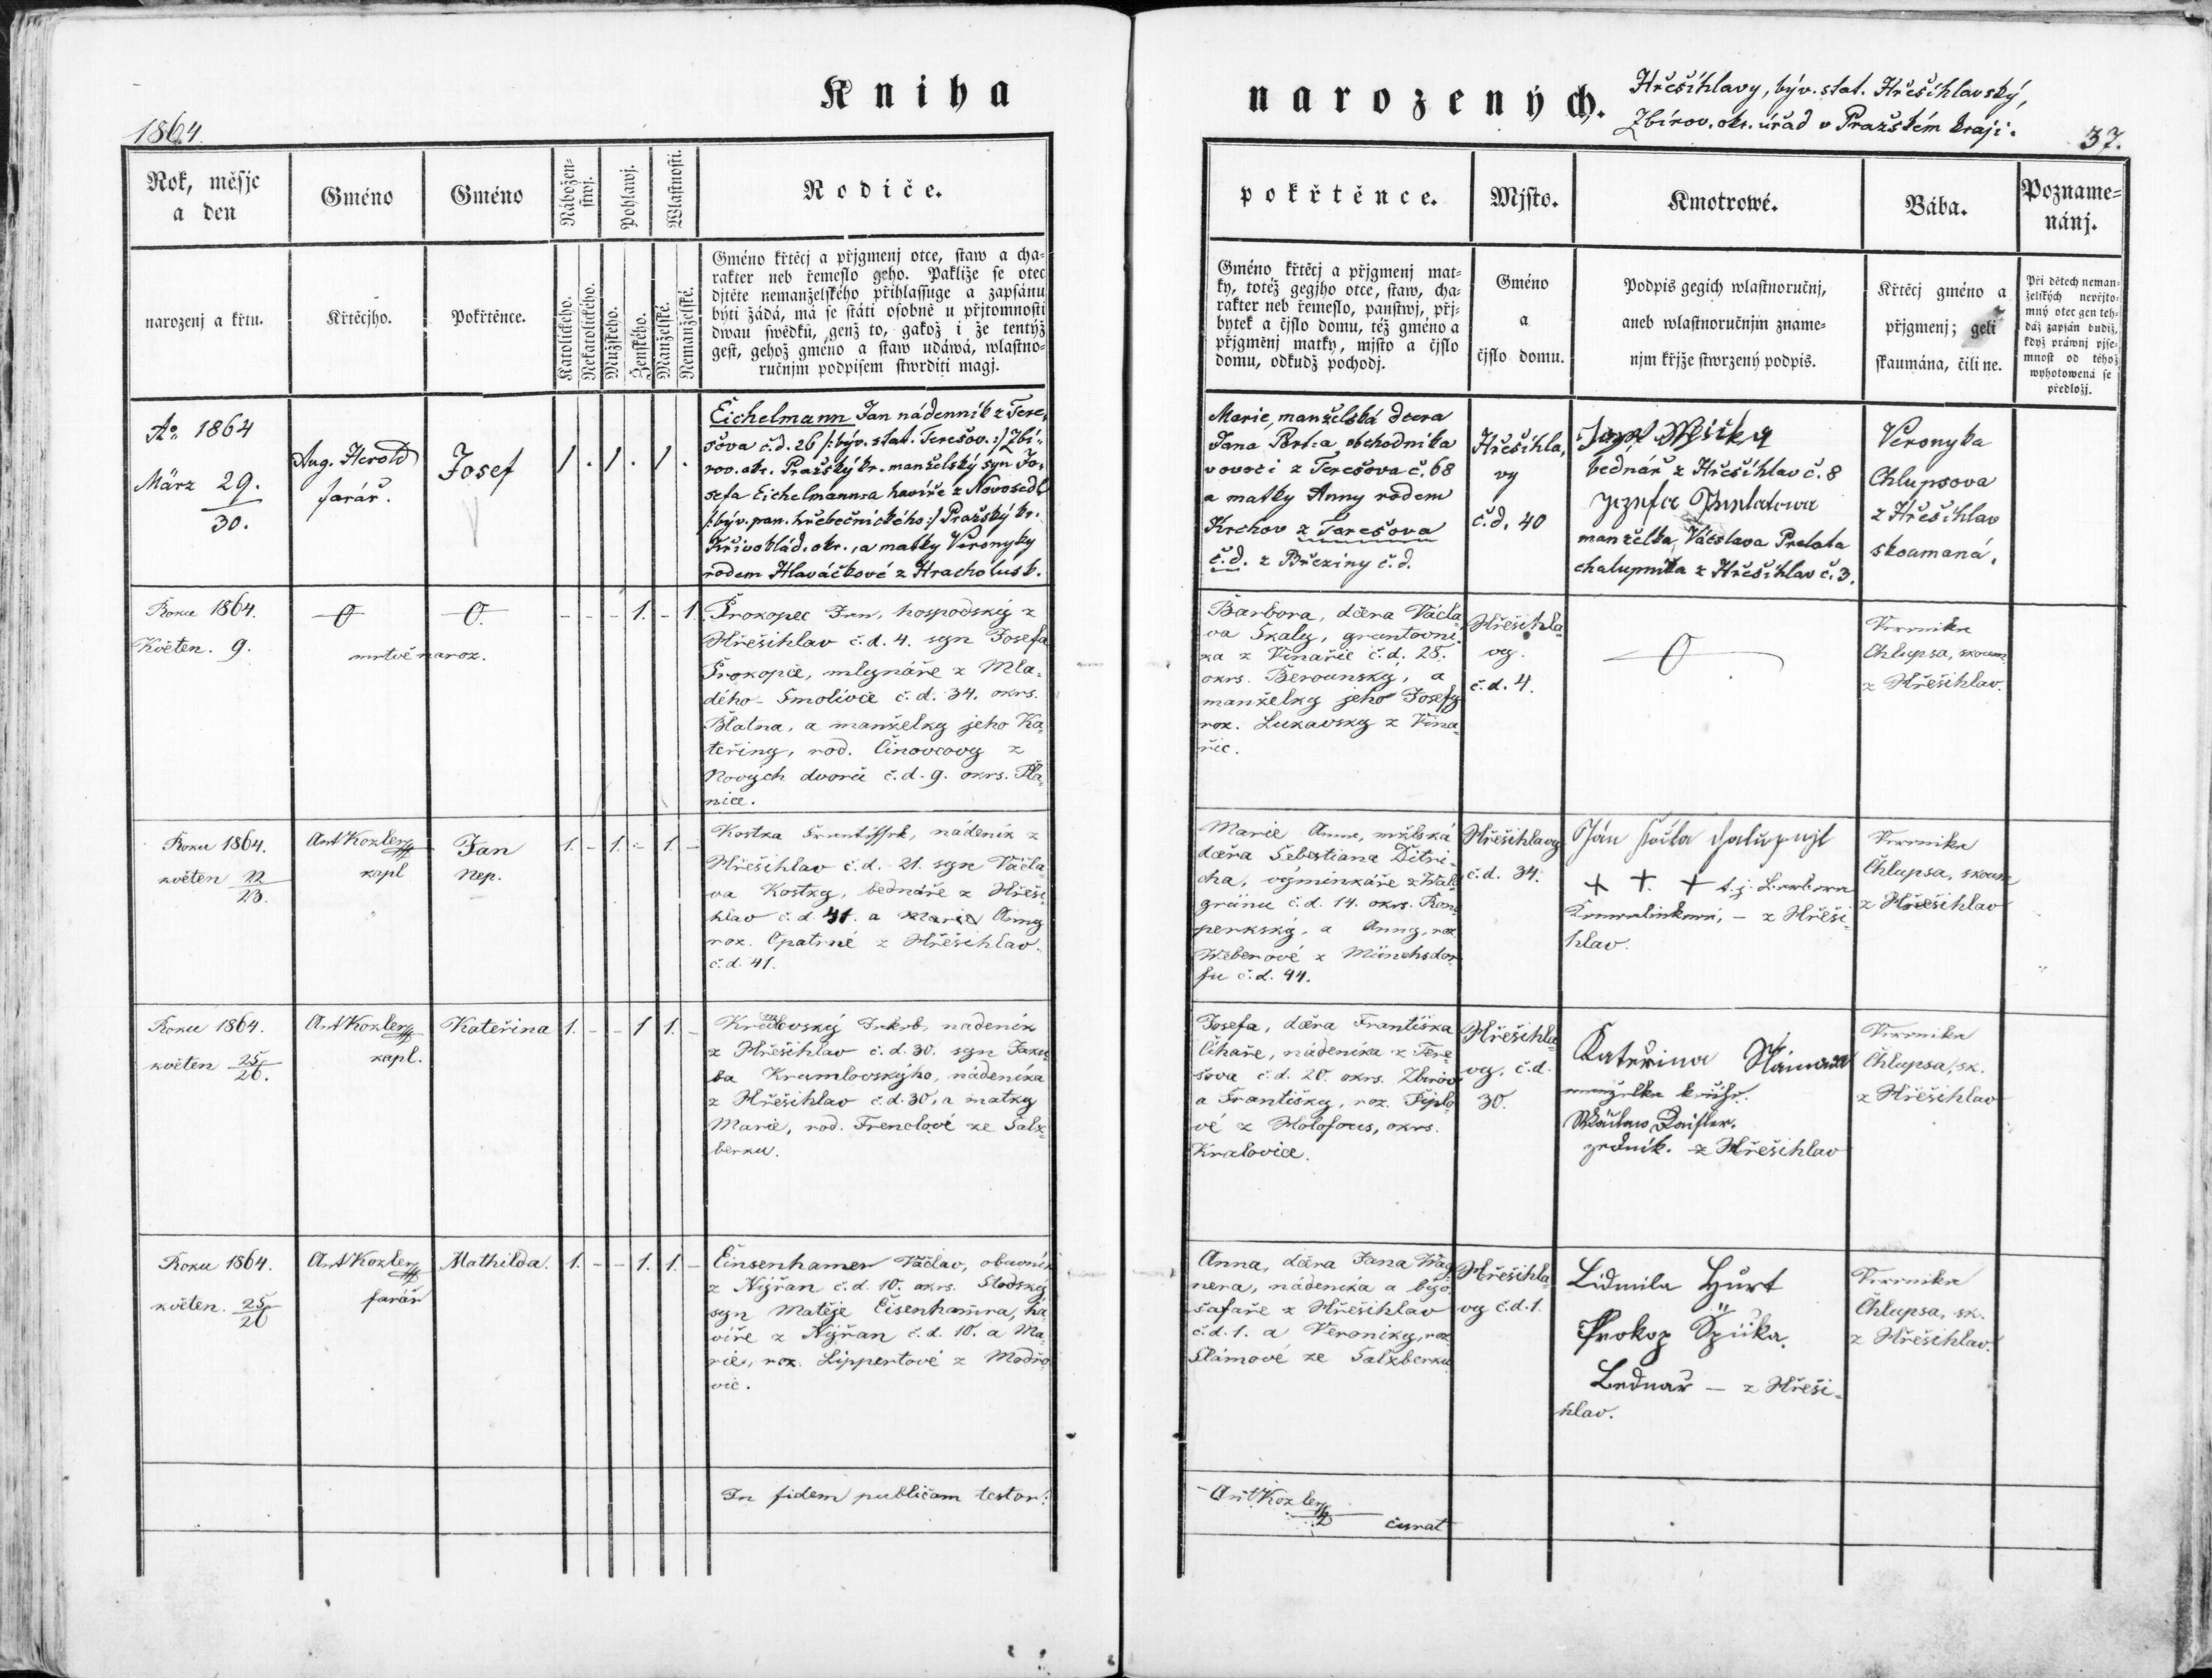 Kniha
1864.
Rok, měsjc
a den
Gméno
Gméno
Nábožen-
stwj.
Pohlawj.
Wlastnosti.
Rodiče.
narozenj a křtu.
Křtěcjho.
Pokřtěnce.
Katolického.
Nekatolického.
Mužského.
Ženského.
Manželské.
Nemanželské.
Gméno křtěcj a přjgmenj otce, staw a cha-
rakter neb řemeslo geho. Pakliže se otec
djtěte nemanželského přihlassuge a zapsánu
býti žádá, má se státi osobně u přjtomnosti
dwau swědků, genž to, gakož i že tentýž
gest, gehož gméno a staw udáwá, wlastno-
ručnjm podpisem stwrditi magj.
Ao. 1864
März 29.
30.
Aug. Herold
farář.
Josef
1 . 1 . 1 .
Eichelmann Jan nádenník z Tere-
šova č.d. 26 /: býv. stat. Terešov. :/ Zbi-
rov. okr. Pražský kr. manželský syn Jo-
sefa Eichelmanna havíře z Novosedl
/: býv. pan. hřebečnického :/ Pražský kr.
Křivoklád. okr., a matky Veronyky
rodem Hlaváčkové z Hracholusk.
Roku 1864.
Květen. 9.
mrtvě naroz.
- - - 1. - 1.
Prokopec Jan, hospodský z
Hřešihlav č.d. 4. syn Josefa
Prokopce, mlynáře z Mla-
dého-Smolivce č.d. 34. okrs.
Blatna, a manželky jeho Ka-
teřiny, rod. Činovcovy z
Nových dvorů č.d. 9. okrs. Pla-
nice.
Roku 1864.
květen 22
23.
Ant Kozler
kapl
Jan
Nep.
1. - 1. - 1. -
Kostka František, nádeník z
Hřešihlav č.d. 21. syn Václa-
va Kostky, bednáře z Hřeši-
hlav č.d. 41. a Marie Anny
roz. Opatrné z Hřešihlav
č.d. 41.
Roku 1864.
květen 25
26.
Ant Kozler
kapl.
Kateřina
1. - - 1 1. -
Jakub, nádeník
z Hřešihlav č.d. 30. syn Jaku-
ba Krumlovskýho, nádeníka
z Hřešihlav č.d. 30, a matky
Marie, rod. Frenclové ze Salz-
berku.
Roku 1864.
květen. 25
26
Ant Kozler
farář
Mathilda.
1. - - 1. 1. -
Einsenhamer Václav, obuvník
z Nýřan č.d. 10. okrs. Stodský
syn Matěje Eisenhamra, ha-
víře z Nýřan č.d. 10. a Ma-
rie, roz. Lippertové z Modřo-
vic.
In fidem publicam testor:
narozených.
Hřešihlavy, býv. stat. Hřešihlavský,
Zbirov. okr. úřad v Pražském kraji.
37.
pokřtěnce.
Mjsto.
Kmotrowé.
Bába.
Pozname-
nánj.
Gméno křtěcj a přjgmenj mat-
ky, totéž gegjho otce, staw, cha-
rakter neb řemeslo, panstwj, přj-
bytek a čjslo domu, též gméno a
přjgměnj matky, mjsto a čjslo
domu, odkudž pochodj.
Gméno
a
čjslo domu.
Podpis gegich wlastnoručnj,
aneb wlastnoručnjm zname-
njm křjže stwrzený podpis.
Křtěcj gméno a
přjgmenj; geli
skaumána, čili ne.
Při dětech neman-
želských nepřjto-
mný otec gen teh-
dáž zapsán budiž,
když práwnj pjse-
mnost od téhož
wyhotowená se
předložj.
Marie, manželská dcera
Jana obchodníka
v ovoci z Terešova č. 68
a matky Anny rodem
Krchov z Terešova
č.d. z Březiny č.d.
Hřešihla-
vy
č.d. 40
bednář z Hřešihlav č. 8
manželka Václava Prelata
chalupníka z Hřešihlav č. 3.
Veronyka
Chlupsova
z Hřešihlav
skoumaná.
Barbora, dcera Václa-
va Skály, gruntovní-
ka z Vinařic č.d. 25.
okrs. Berounský, a
manželky jeho Josefy
roz. Lukavsky z Vina-
řic.
Hřešihla-
vy.
č.d. 4.
Veronika
Chlupsa, skoum.
z Hřešihlav.
Marie Anna, mžlská
dcera Šebestiana Ditri-
cha, výminkáře z
č.d. 14. okrs. Ron-
sperkský, a Anny, roz.
Weberové z Münchsdor-
fu č.d. 44.
Hřešihlavy
č.d. 34.
+ + + t.j. Barbora
z Hřeši-
hlav.
Veronika
Chlupsa, skoum
z Hřešihlav
Josefa, dcera Františka
Čihaře, nádeníka z Tere-
šova č.d. 20. okrs. Zbirov
a Františky, roz. Tiplo-
vé z Holofous, okrs.
Kralovice.
Hřešihla-
vy, č.d.
30.
Kateřina
zedník. z Hřešihlav
Veronika
Chlupsa, sk.
z Hřešihlav
Anna, dcera Jana Wag-
nera, nádeníka a býv.
šafáře z Hřešihlav
č.d. 1. a Veroniky, roz.
Slámové ze Salzberku
Hřešihla-
vy č.d. 1.
Lidmila Hurt
Prokop Špička.
Bednář — z Hřeši-
hlav.
Veronika
Chlupsa, sk.
z Hřešihlav.
Ant Kozler
curat